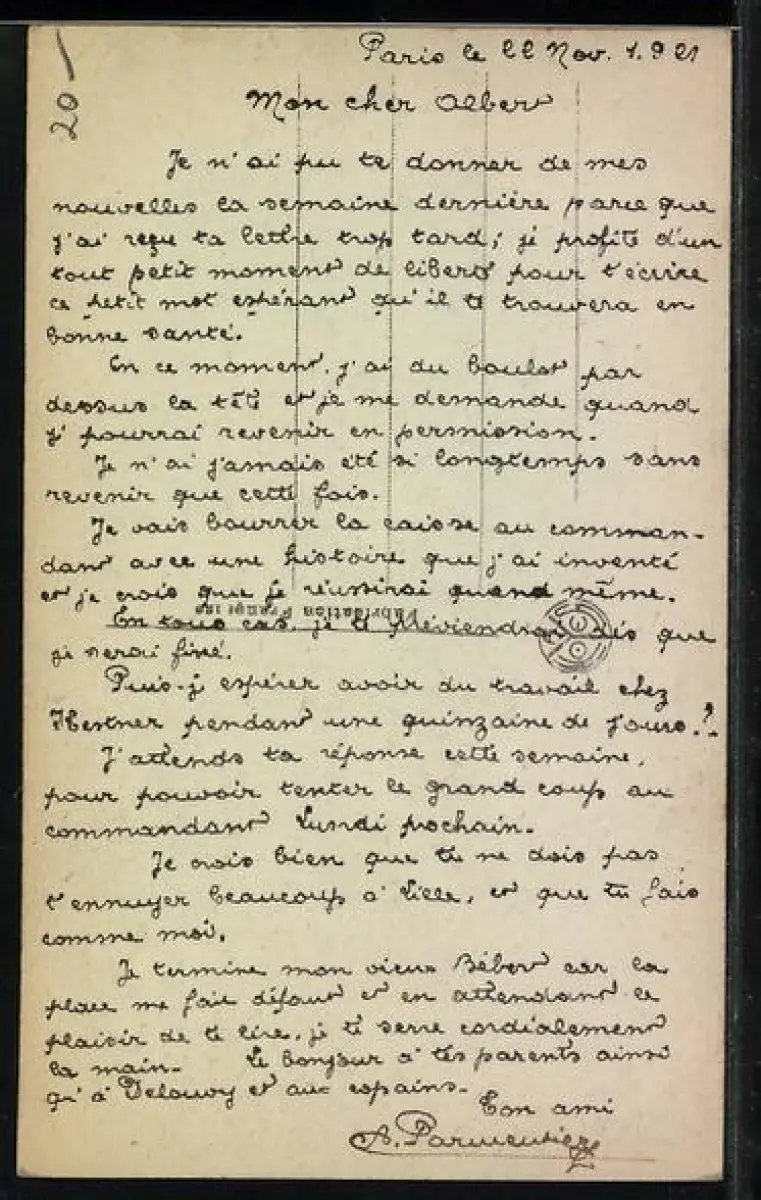 20
Paris le 22 Nov. 1.921
Mon cher Albert
Je n'ai pu te donner de mes
nouvelles la semaine dernière parce que
j'ai reçu ta lettre trop tard; je profite d'un
tout petit moment de liberté pour t'écrire
ce petit mot espérant qu'il te trouvera en
bonne santé.
En ce moment, j'ai du boulot par
dessus la tête et je me demande quand
j' pourrai revenir en permission.
Je n'ai j'amais été si longtemps sans
revenir que cette fois.
Je vais bourrer la caisse au comman-
dant avec une histoire que j'ai inventé
et je crois que je réussirai quand même.
Fabrication Française
En tous cas, je te dès que
je serai fixé.
Puis-j espérer avoir du travail chez
pendant une quinzaine de jours.?
J'attends ta réponse cette semaine,
pour pouvoir tenter le grand coup au
commandant Lundi prochain.
Je crois bien que tu ne dois pas
t'ennuyer beaucoup à Lille, et que tu fais
comme moi.
Je termine mon vieux Bébert car la
place me fait défaut et en attendant le
plaisir de te lire, je te serre cordialement
la main. Le bonjour à tes parents ainsi
qu'à et aux copains.
Ton ami
A. Parmentier